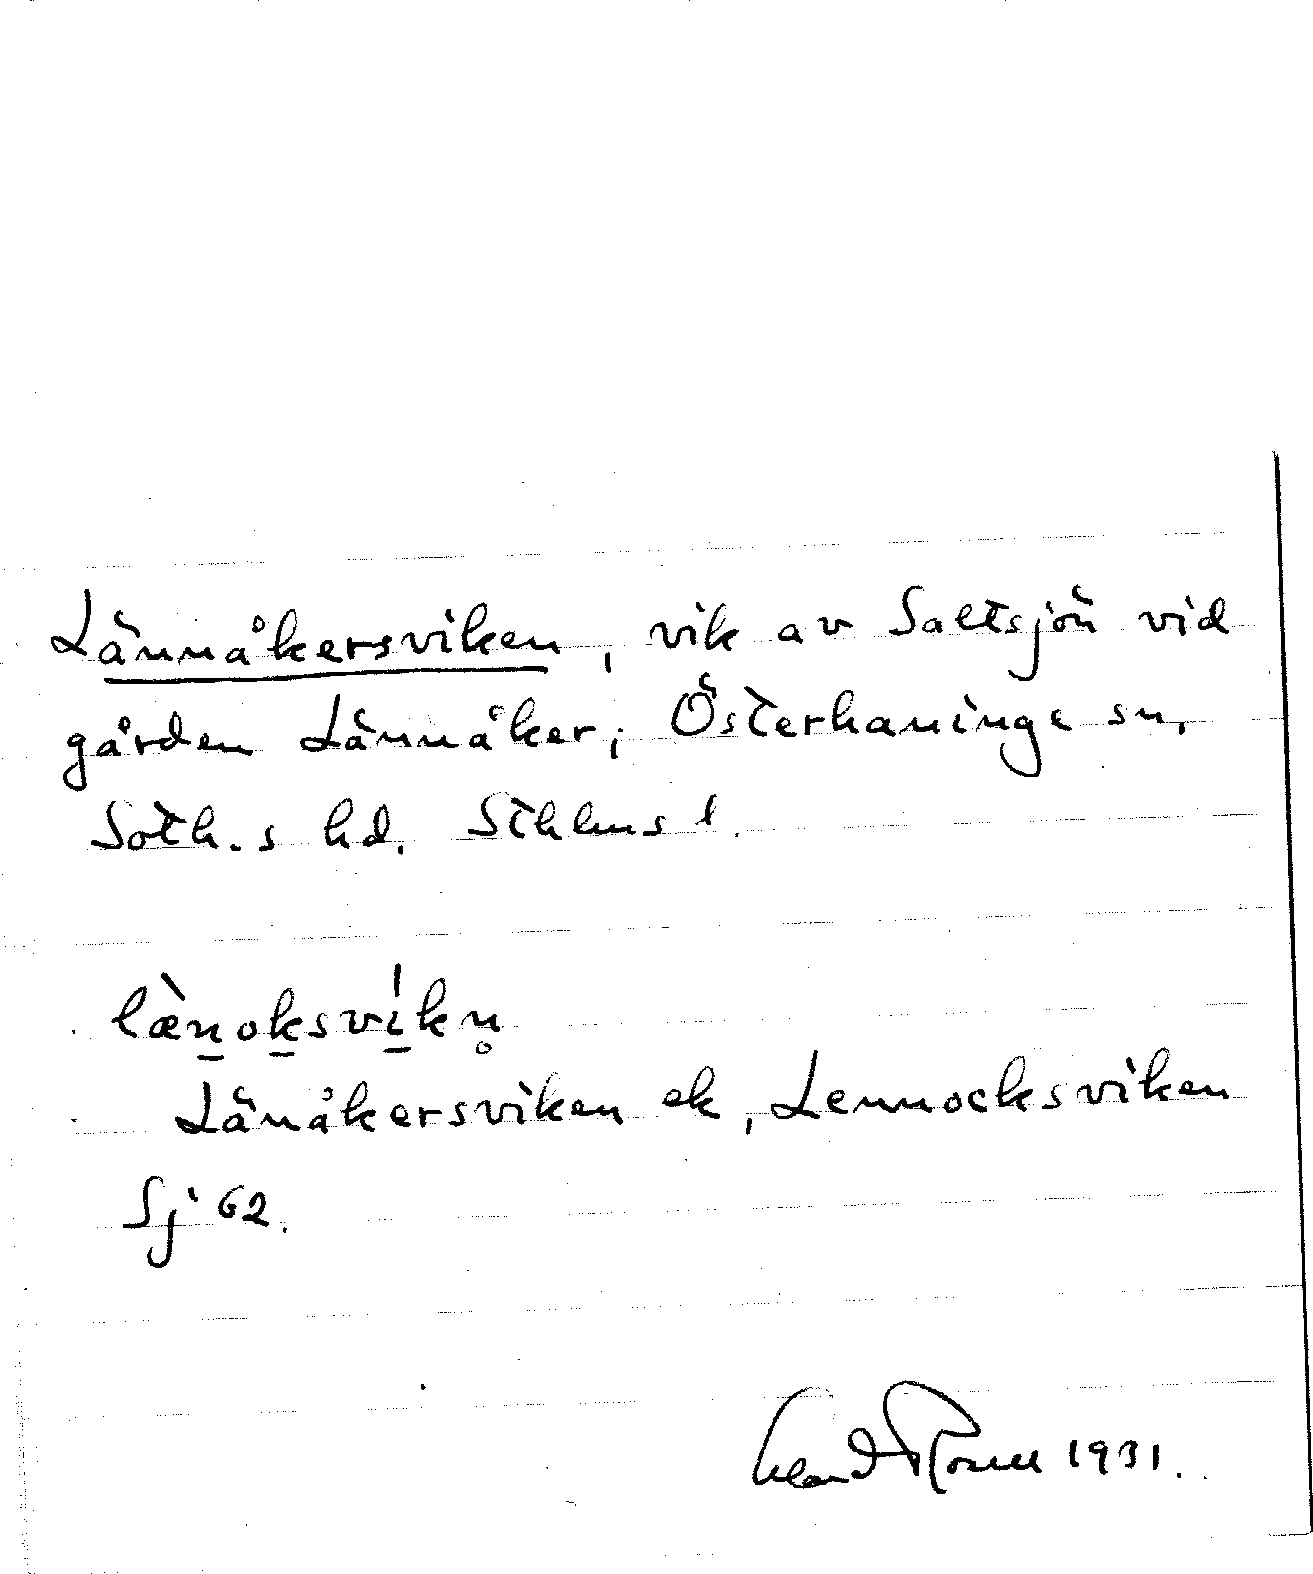 Lännåkersviken, vik av Saltsjön vid
gården Lännåker, Österhaninge sn,
Soth.s hd. Sthlms l.
læ̀n̲ok̲sví̲kn̥
Länåkersviken ek, Lennocksviken
Sj 62.
1931.